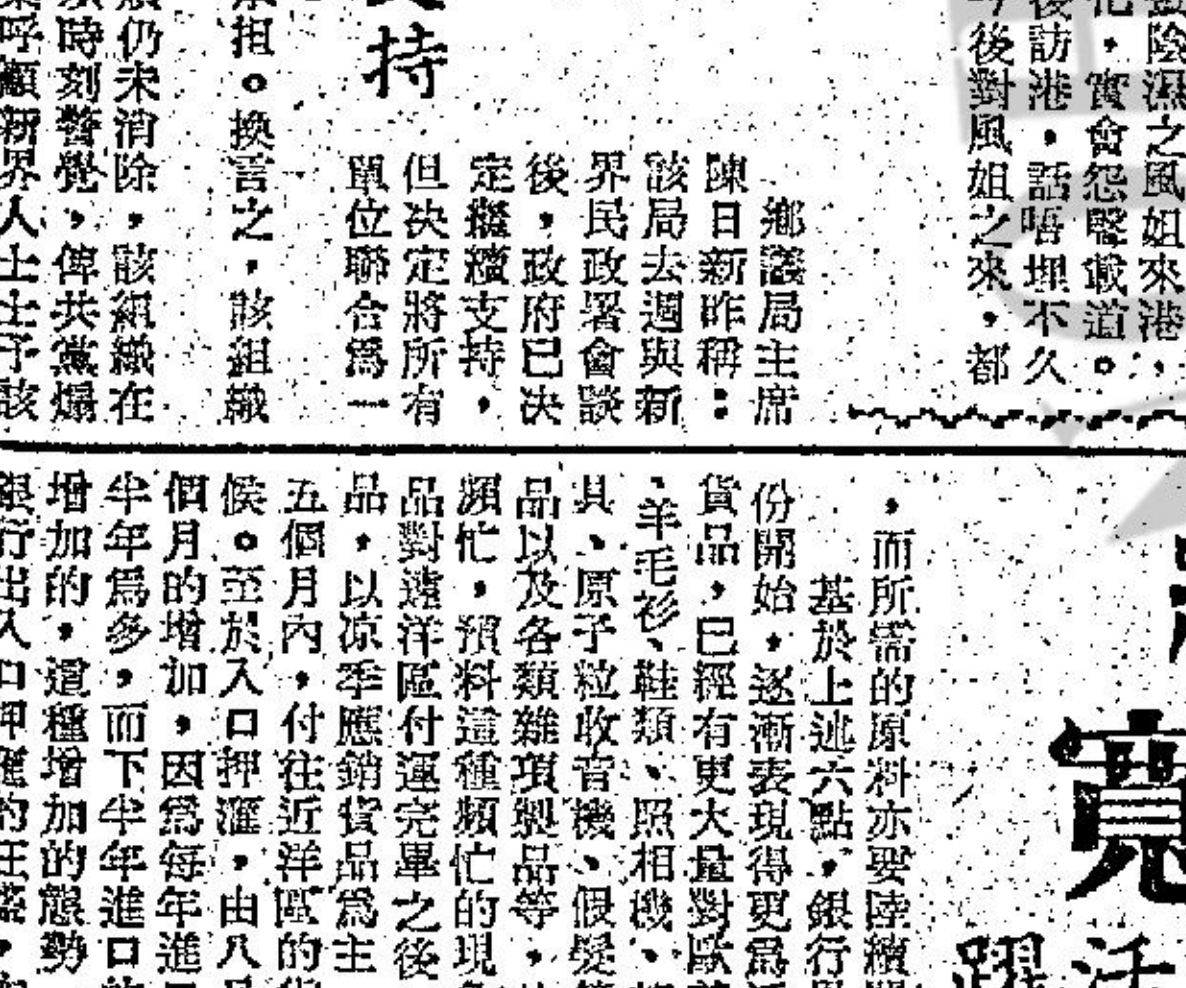 陰濕之風姐來港，
，實會怨聲載道。
後訪港，話唔埋不久
今後對風姐之來，都
持
鄉議局主席
陳日新昨稱：
該局去週與新
界民政署會談
後，政府已決
定繼續支持，
但決定將所有
單位聯合爲一
担。換言之，該組織
仍未消除，該組織在
時刻警覺，俾共黨煽
呼籲新界人士
寬
活
躍
，而所需的原料亦要陸續
基於上述六點，銀行
份開始，逐漸表現得更爲
貨品，已經有更大量對歐
、羊毛衫、鞋類、照相機、
具、原子粒收音機、假髮
品以及各類雜項製品等，
頻忙，預料這種頻忙的現
品對遠洋區付運完畢之後
品，以凉季應銷貨品爲主
五個月內，付往近洋區的
候。至於入口押滙，由八
個月的增加，因爲每年進
半年爲多，而下半年進口
增加的，這種增加的態勢
銀行出入口押滙的旺盛，